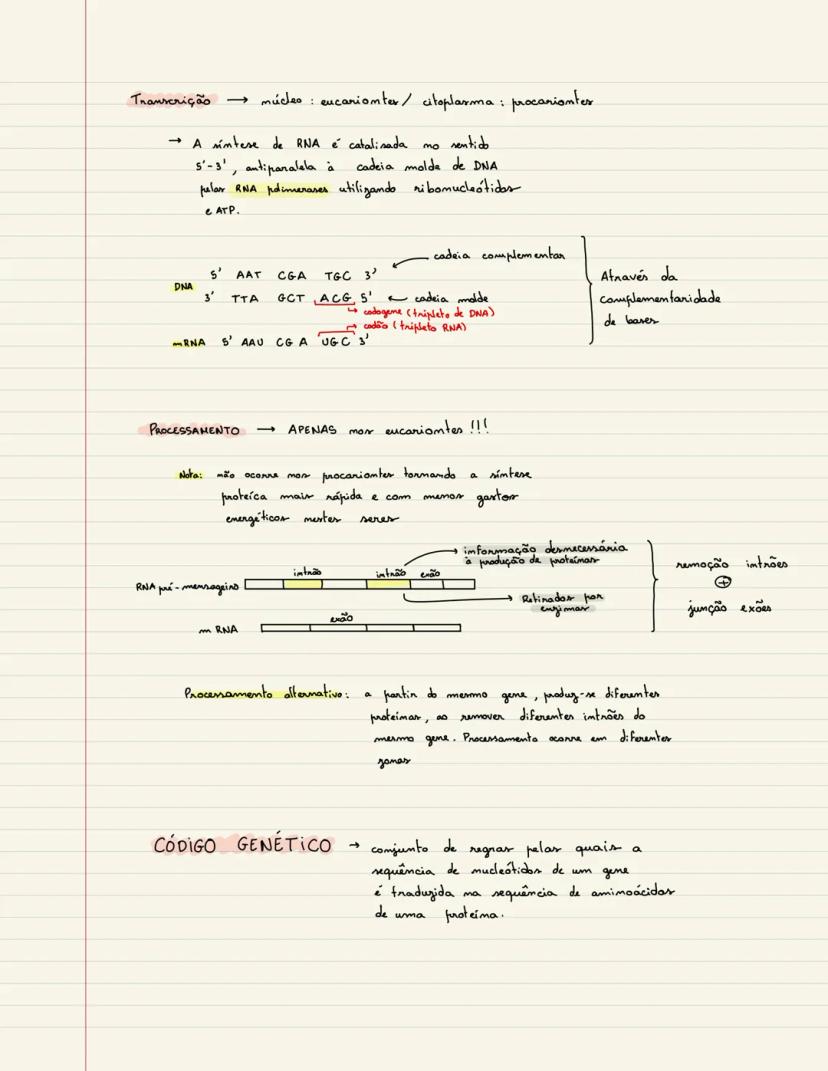 Transcrição → núcleo : eucariontes / citoplasma : procariontes
→ A síntese de RNA é catalisada no sentido
5'-3', antiparalela à cadeia molde de DNA
pelas RNA polimerases utilizando ribonucleótidos
e ATP.
cadeia complementar
5' AAT CGA TGC 3'
DNA
3' TTA GCT ACG 5' ← cadeia molde
↳ codogene (tripleto de DNA)
codão (tripleto RNA)
mRNA 5' AAU CGA UGC 3'
Através da
complementaridade
de bases
PROCESSAMENTO → APENAS nos eucariontes !!!
Nota: não ocorre nos procariontes tornando a síntese
proteíca mais rápida e com menos gastos
energéticos nestes seres
informação desnecessária
à produção de proteínas
intrão intrão exão
RNA pré-mensageiro
Retirados por
enzimas
exão
mRNA
remoção intrões
⊕
junção exões
Processamento alternativo: a partir do mesmo gene, produz-se diferentes
proteínas, ao remover diferentes intrões do
mesmo gene. Processamento ocorre em diferentes
zonas
CÓDIGO GENÉTICO → conjunto de regras pelas quais a
sequência de nucleótidos de um gene
é traduzida na sequência de aminoácidos
de uma proteína.